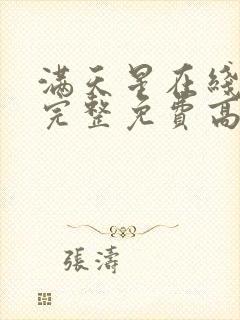 滿天星在綫
完整免費高
張濤